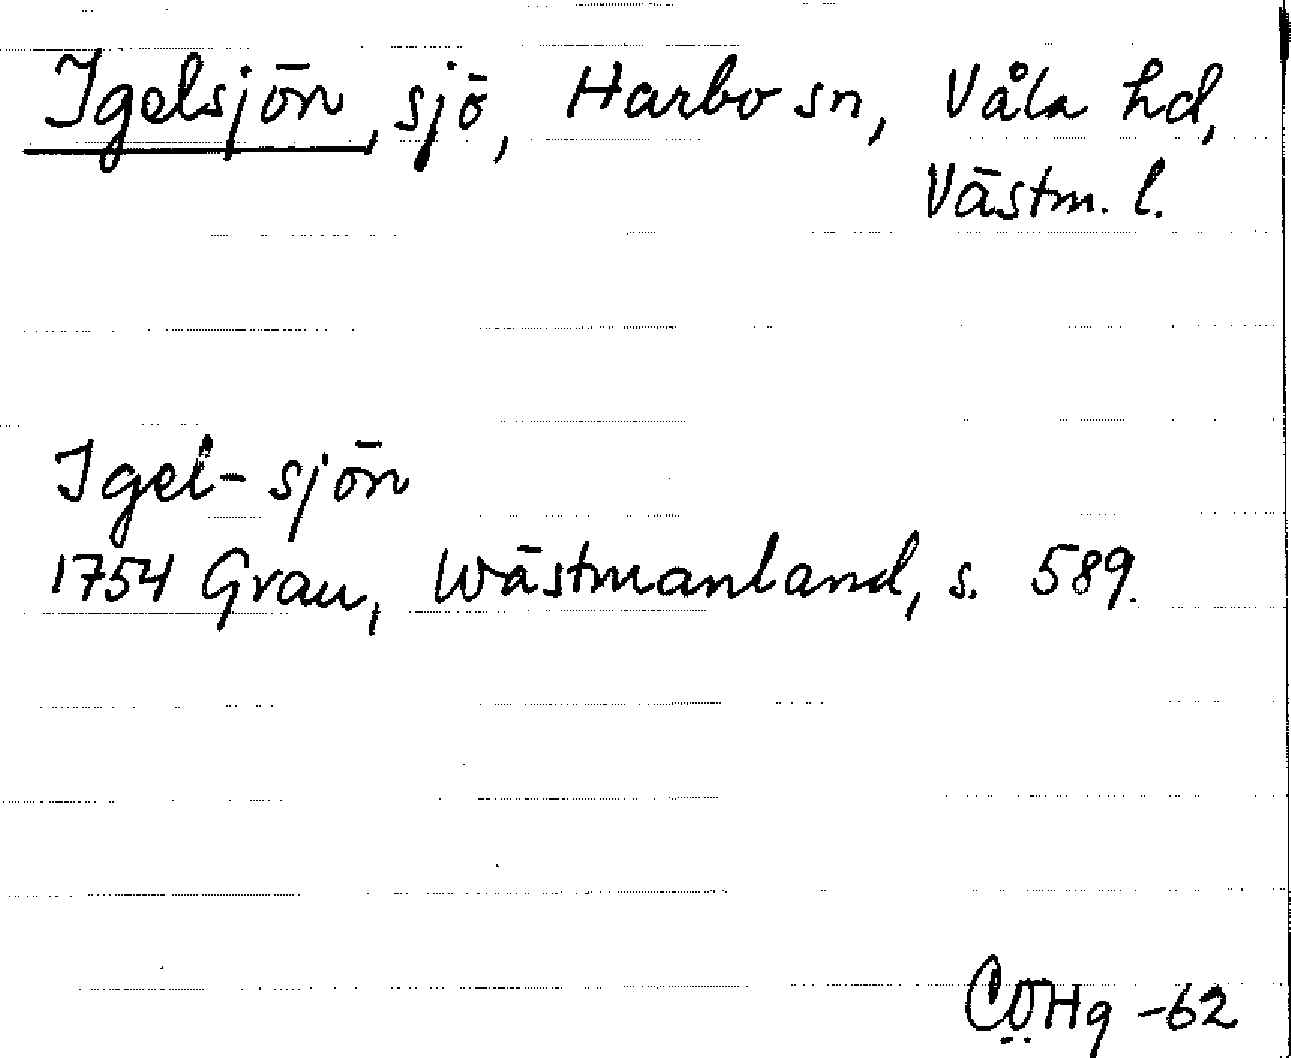 Igelsjön, sjö, Harbo sn, Våla hd,
Västm. l.
Igel-sjön
1754 Grau, Wästmanland, s. 589.
CÖHg -62